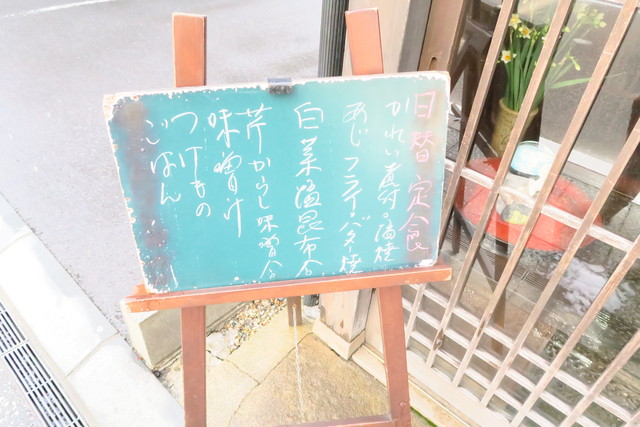 日替定食
かれい煮付。蒲焼
あじフライ・バタ焼
白菜塩昆布合
芹からし味噌合
味噌汁
つけもの
ごはん